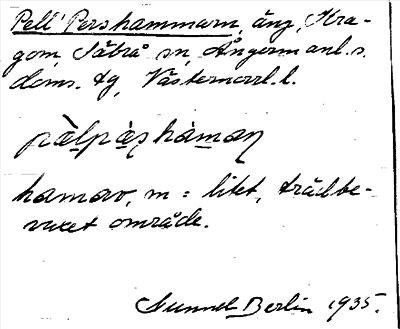 Pell' Pershammarn, äng, Kra-
gom, Säbrå sn, Ångermanl. s.
doms. tg, Västernorrl. l.
pàlpàṣhàman
hamar, m = litet, trädbe-
vuxet område.
Gunnel Berlin 1935.